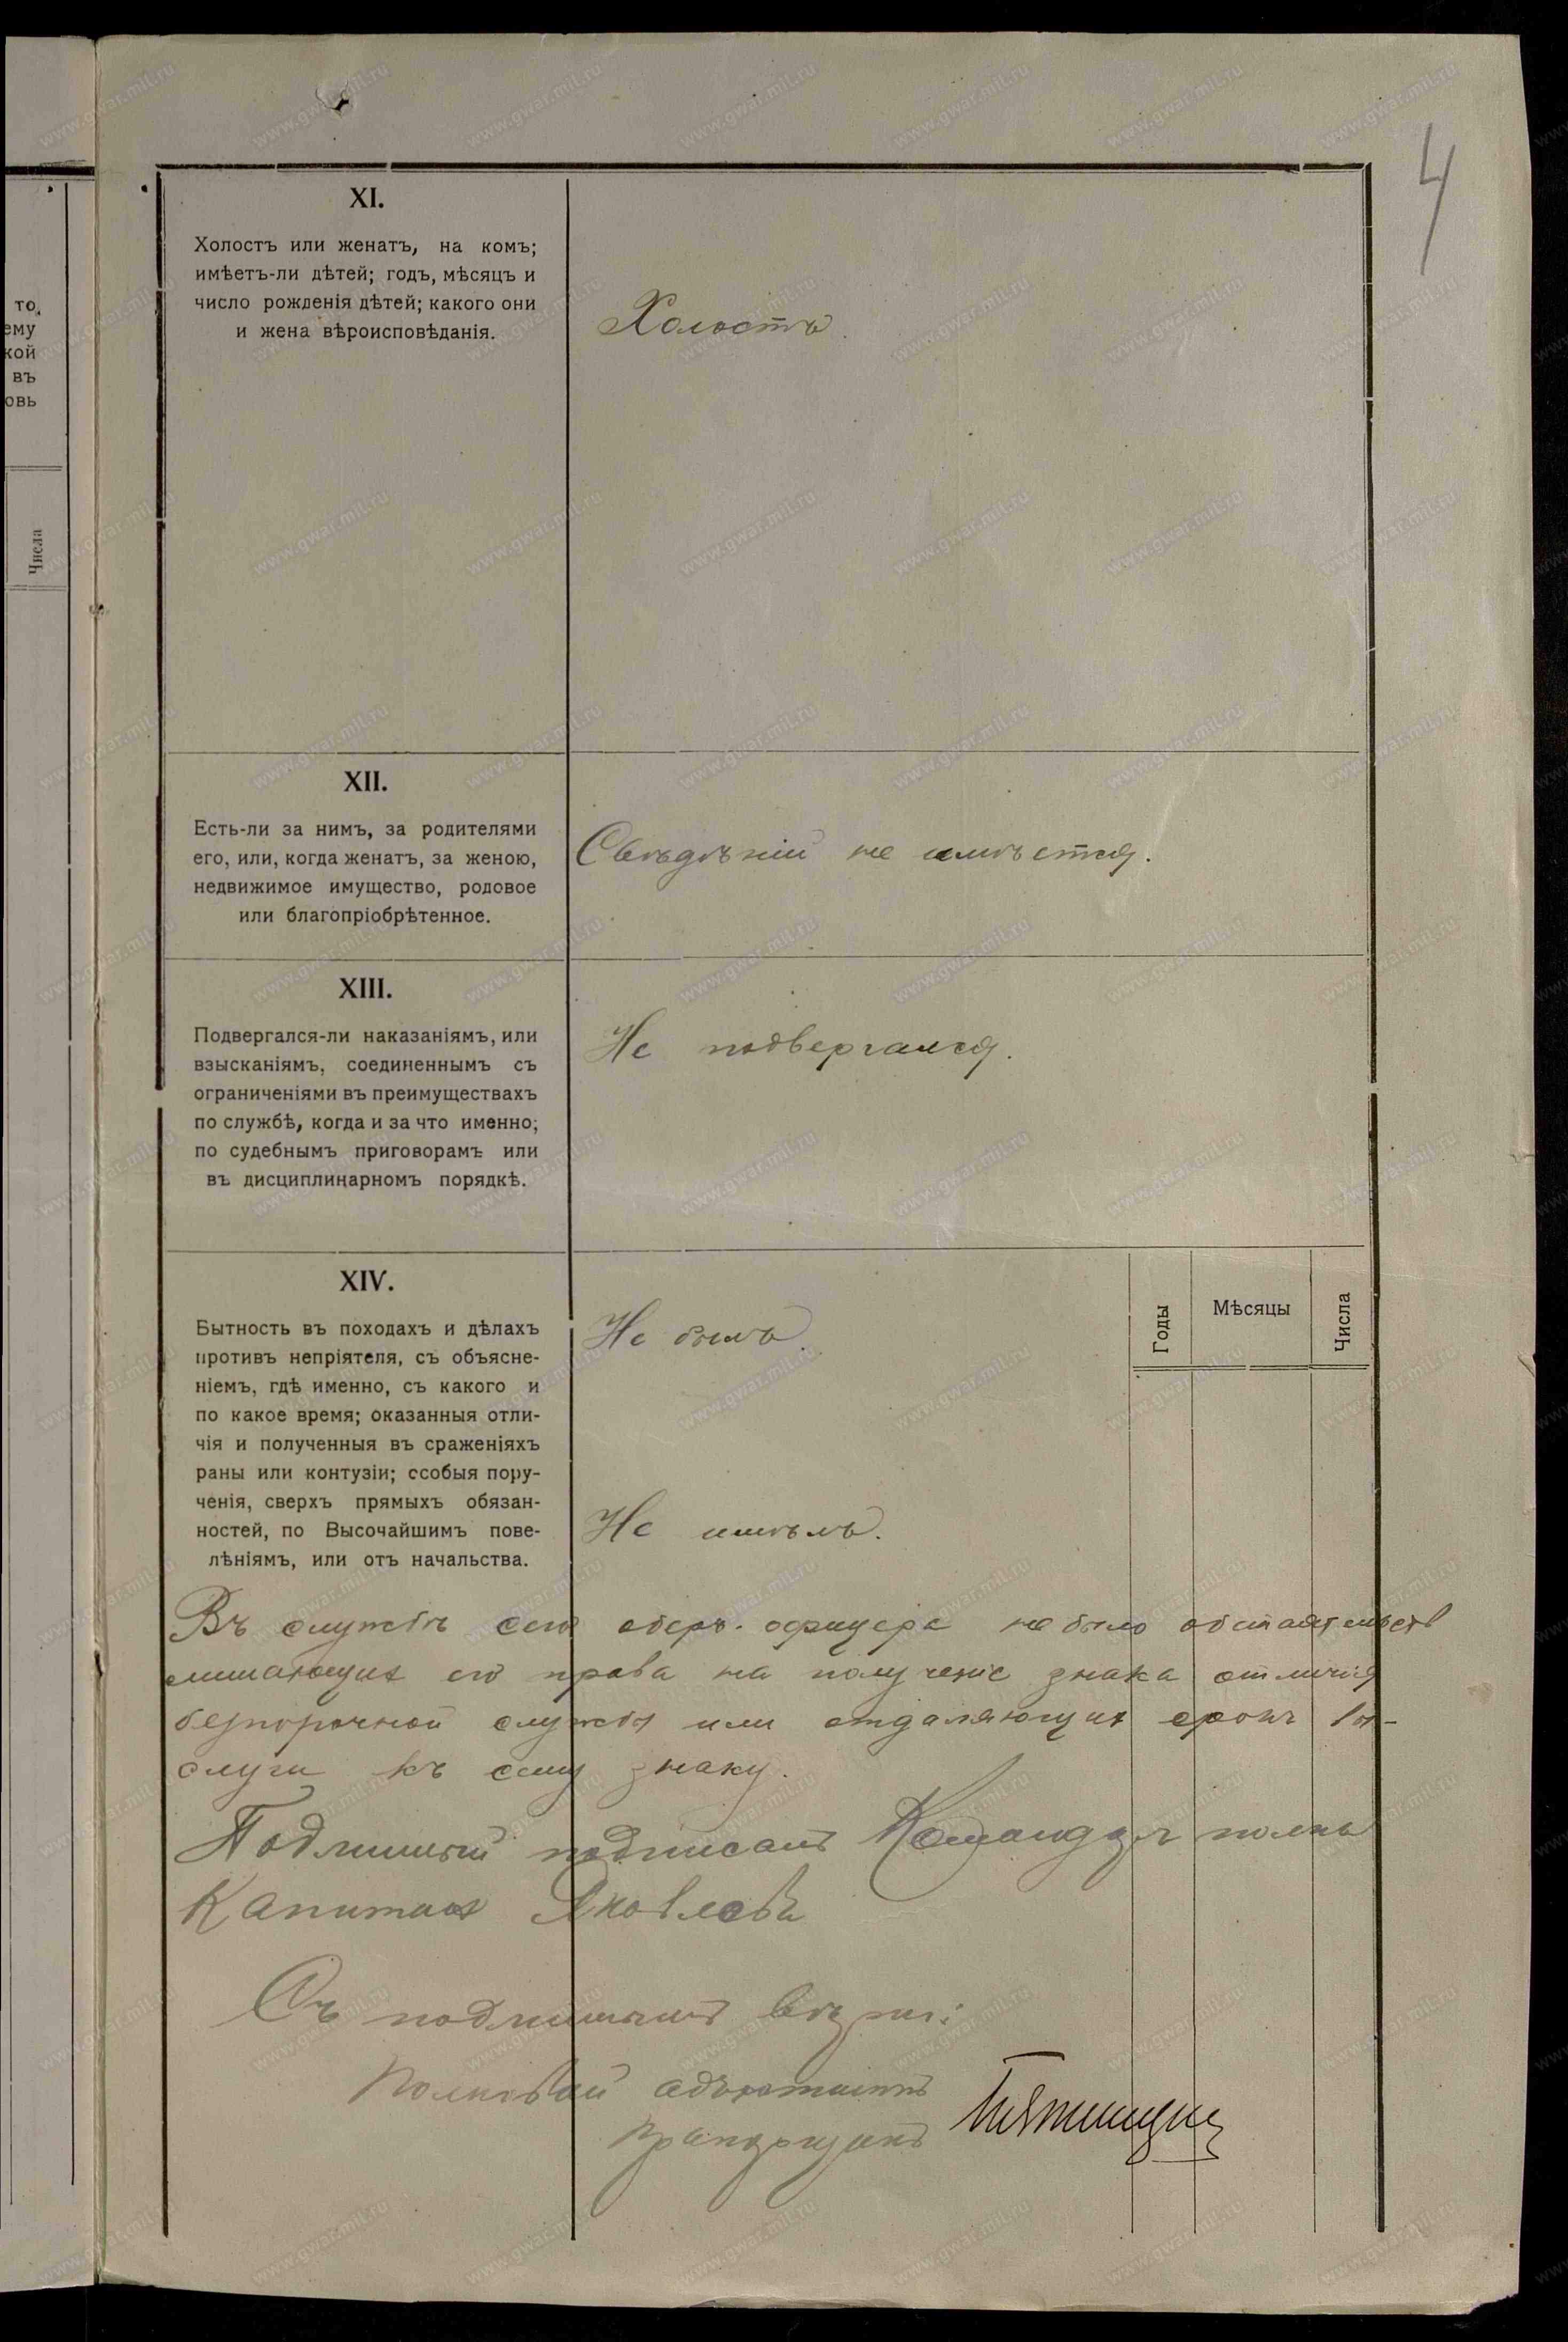 4
то,
ему
кой
въ
овь
Числа
XI.
Холостъ или женатъ, на комъ;
имѣетъ-ли дѣтей; годъ, мѣсяцъ и
число рожденія дѣтей; какого они
и жена вѣроисповѣданія.
Холостъ.
XII.
Есть-ли за нимъ, за родителями
его, или, когда женатъ, за женою,
недвижимое имущество, родовое
или благопріобрѣтенное.
Свѣдѣній не имѣется.
XIII.
Подвергался-ли наказаніямъ, или
взысканіямъ, соединеннымъ съ
ограниченіями въ преимуществахъ
по службѣ, когда и за что именно;
по судебнымъ приговорамъ или
въ дисциплинарномъ порядкѣ.
Не подвергался.
XIV.
Бытность въ походахъ и дѣлахъ
противъ непріятеля, съ объясне-
ніемъ, гдѣ именно, съ какого и
по какое время; оказанныя отли-
чія и полученныя въ сраженіяхъ
раны или контузіи; ссобыя пору-
ченія, сверхъ прямыхъ обязан-
ностей, по Высочайшимъ пове-
лѣніямъ, или отъ начальства.
Не былъ.
Не имѣлъ.
Годы
Мѣсяцы
Числа
Въ службѣ сего оберъ-офицера не было обстоятельств
лишающихъ его права на полученіе знака отличія
безпорочной службы или отдаляющихъ срокъ вы-
слуги къ сему знаку.
Подлинный подписалъ Командиръ полка
Капитанъ Яковлевъ
Съ подлиннымъ вѣрно:
Полковой адъютантъ
Прапорщикъ
www.gwar.mil.ru